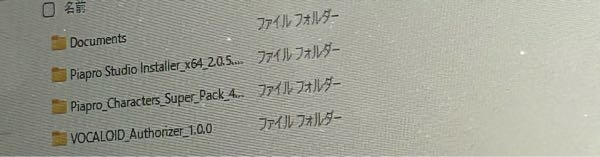 名前
Documents ファイル フォルダー
Piapro Studio Installer_x64_2.0.5.... ファイル フォルダー
Piapro_Characters_Super_Pack_4... ファイル フォルダー
VOCALOID_Authorizer_1.0.0 ファイル フォルダー